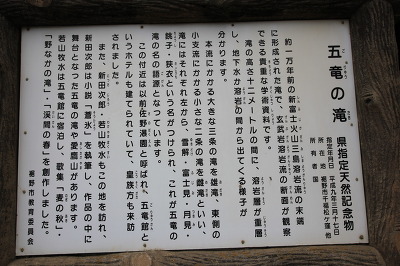 五竜の滝
県指定天然記念物
指定年月日 平成九年三月十七日
所在地 裾野市千福松ケ窪他
所有者 国
約一万年前の新富士火山三島溶岩流の末端
に形成された滝で、玄武岩溶岩流の断面が観察
できる貴重な学術資料です。
滝の高さ十二メートルの間に、溶岩層が重層
し、地下水が溶岩の間から出てくる様子が
分かります。
本流にかかる大きな三条の滝を雄滝、東側の
小支流にかかる小さな二条の滝を雌滝といい、
滝にはそれぞれ左から、雪解、富士見、月見・
銚子、狭衣、という名がつけられ、これが五竜の
滝の名の語源となっています。
この付近は以前佐野瀑園と呼ばれ、五竜館と
いうホテルも建てられていて、皇族方も来訪
されました。
また、新田次郎、若山牧水もこの地を訪れ、
新田次郎は小説「蒼氷」を執筆し、作品の中に
舞台となった五竜の滝や愛鷹山があります。
若山牧水は五竜館に宿泊し、歌集「麦の秋」・
「野なかの滝」・「渓間の春」を創作しました。
裾野市教育委員会